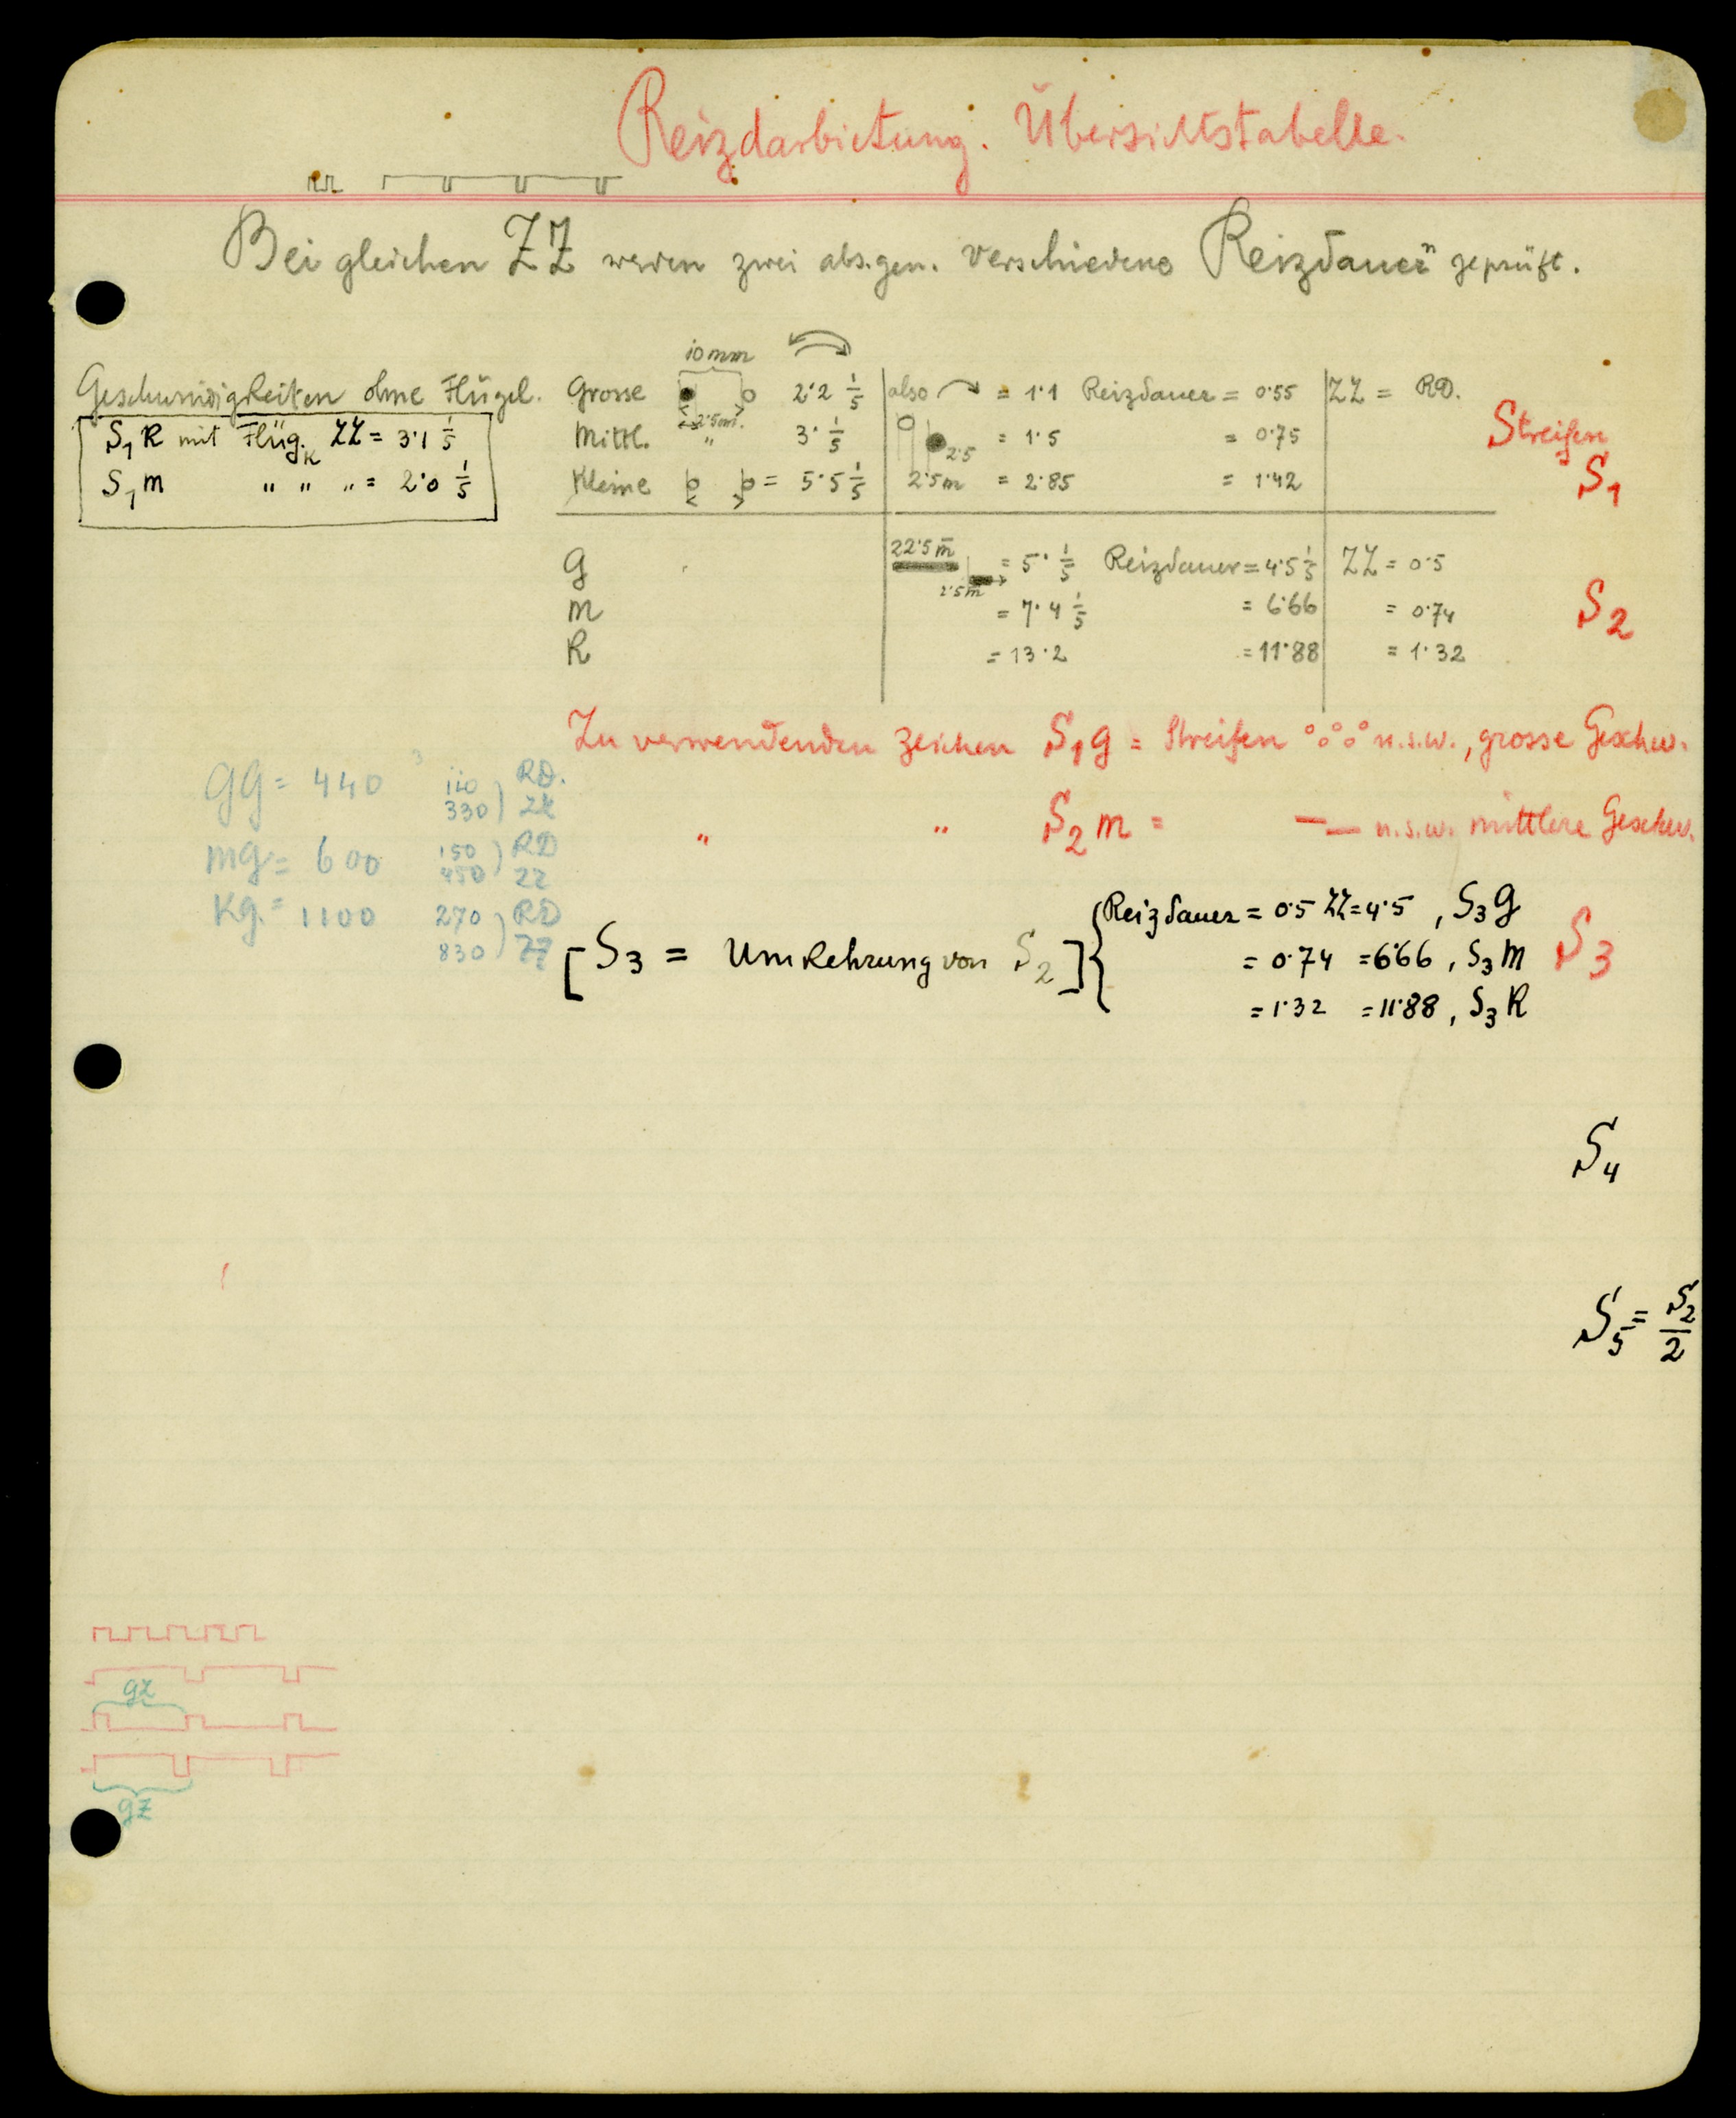 Reizdarbietung. Übersichtstabelle.
Bei gleichen ZZ werden zwei abs. gen. verschiedene "Reizdauer" geprüft.
Geschwindigkeiten ohne Flügel.
S1 K mit Flüg.K ZZ = 3·1 1/5
S1 m " " " = 2·0 1/5
10 mm
Grosse 2·2 1/5 also = 1·1 Reizdauer = 0·55 ZZ = RD.
2·5m.
Mittl. " 3· 1/5 = 1·5 = 0·75
2·5
Kleine = 5·5 1/5 2·5m = 2·85 = 1·42
Streifen
S1
22·5m
g = 5· 1/5 Reizdauer = 4·5 1/5 ZZ = 0·5
2·5m
m = 7·4 1/5 = 6·66 = 0·74
K = 13·2 = 11·88 = 1·32
S2
Zu verwendenden Zeichen S1g = Streifen °°°° u.s.w., grosse Geschw.
" " S2m = — — u.s.w. mittlere Geschw.
gg = 440 110 ) RD.
330 ) ZZ
mg = 600 150 ) RD
450 ) ZZ
Kg. = 1100 270 ) RD
830 ) ZZ
[S3 = Umkehrung von S2] { Reizdauer = 0·5 ZZ = 4·5 , S3 g
= 0·74 = 6·66 , S3 m
= 1·32 = 11·88 , S3 K
S3
S4
S5 = S2/2
gZ
gZ